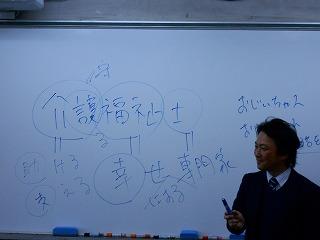 守
介護福祉士
る
助ける 幸せ 専門家
支える
おじいちゃん